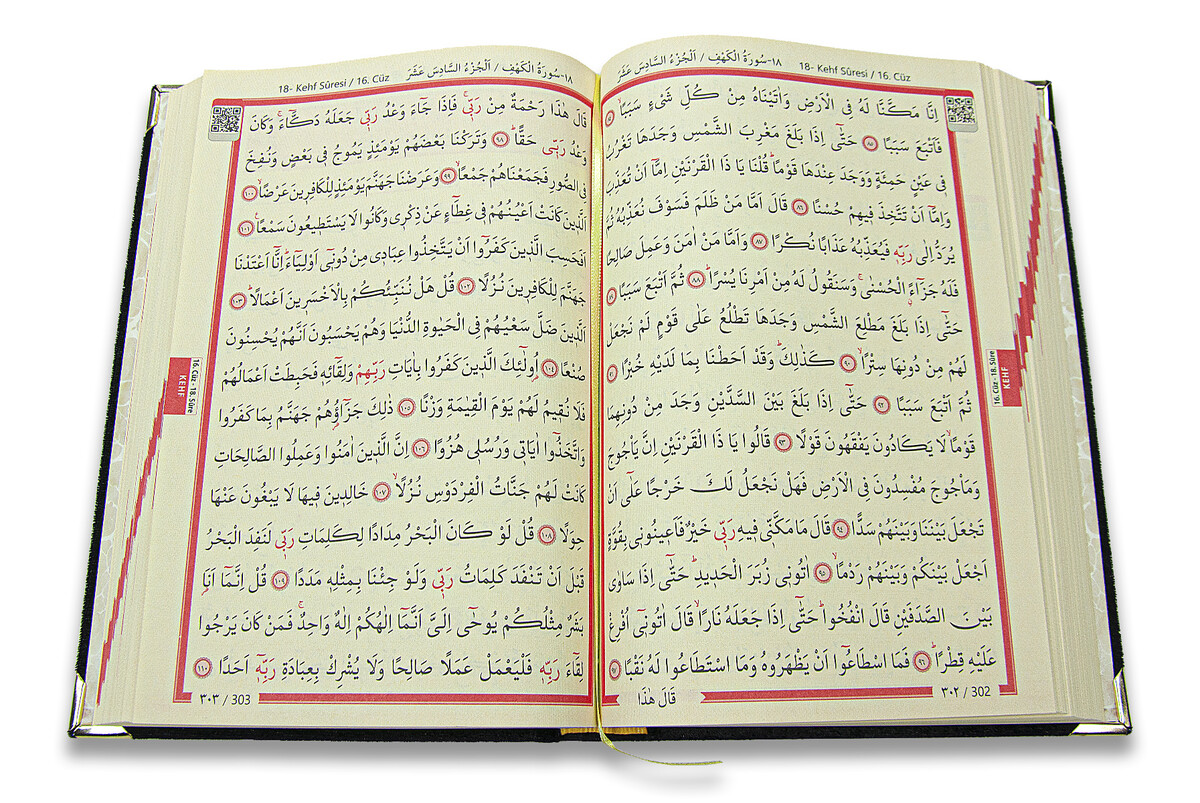 ١٨-سُورَةُ الْكَهْفِ / اَلْجُزْءُ السَّادِسَ عَشَرَ 18- Kehf Sûresi / 16. Cüz
اِنَّا مَكَّنَّا لَهُ فِى الْاَرْضِ وَاٰتَيْنَاهُ مِنْ كُلِّ شَىْءٍ سَبَبًاۙ ﴿٨٤﴾
فَاَتْبَعَ سَبَبًا ﴿٨٥﴾ حَتّٰٓى اِذَا بَلَغَ مَغْرِبَ الشَّمْسِ وَجَدَهَا تَغْرُبُ
فٖى عَيْنٍ حَمِئَةٍ وَوَجَدَ عِنْدَهَا قَوْمًاؕ قُلْنَا يَا ذَا الْقَرْنَيْنِ اِمَّٓا اَنْ تُعَذِّبَ
وَاِمَّٓا اَنْ تَتَّخِذَ فٖيهِمْ حُسْنًا ﴿٨٦﴾ قَالَ اَمَّا مَنْ ظَلَمَ فَسَوْفَ نُعَذِّبُهُ ثُمَّ
يُرَدُّ اِلٰى رَبِّهٖ فَيُعَذِّبُهُ عَذَابًا نُكْرًا ﴿٨٧﴾ وَاَمَّا مَنْ اٰمَنَ وَعَمِلَ صَالِحًا
فَلَهُ جَزَٓاءًۨ الْحُسْنٰىۚ وَسَنَقُولُ لَهُ مِنْ اَمْرِنَا يُسْرًاؕ ﴿٨٨﴾ ثُمَّ اَتْبَعَ سَبَبًا ﴿٨٩﴾
حَتّٰٓى اِذَا بَلَغَ مَطْلِعَ الشَّمْسِ وَجَدَهَا تَطْلُعُ عَلٰى قَوْمٍ لَمْ نَجْعَلْ
لَهُمْ مِنْ دُونِهَا سِتْرًاۙ ﴿٩٠﴾ كَذٰلِكَؕ وَقَدْ اَحَطْنَا بِمَا لَدَيْهِ خُبْرًا ﴿٩١﴾
ثُمَّ اَتْبَعَ سَبَبًا ﴿٩٢﴾ حَتّٰٓى اِذَا بَلَغَ بَيْنَ السَّدَّيْنِ وَجَدَ مِنْ دُونِهِمَا
قَوْمًاۙ لَا يَكَادُونَ يَفْقَهُونَ قَوْلًا ﴿٩٣﴾ قَالُوا يَا ذَا الْقَرْنَيْنِ اِنَّ يَاْجُوجَ
وَمَاْجُوجَ مُفْسِدُونَ فِى الْاَرْضِ فَهَلْ نَجْعَلُ لَكَ خَرْجًا عَلٰٓى اَنْ
تَجْعَلَ بَيْنَنَا وَبَيْنَهُمْ سَدًّا ﴿٩٤﴾ قَالَ مَا مَكَّنّٖى فٖيهِ رَبّٖى خَيْرٌ فَاَعٖينُونٖى بِقُوَّةٍ
اَجْعَلْ بَيْنَكُمْ وَبَيْنَهُمْ رَدْمًاۙ ﴿٩٥﴾ اٰتُونٖى زُبَرَ الْحَدٖيدِؕ حَتّٰٓى اِذَا سَاوٰى
بَيْنَ الصَّدَفَيْنِ قَالَ انْفُخُواؕ حَتّٰٓى اِذَا جَعَلَهُ نَارًاۙ قَالَ اٰتُونٖٓى اُفْرِغْ
عَلَيْهِ قِطْرًاؕ ﴿٩٦﴾ فَمَا اسْطَاعُٓوا اَنْ يَظْهَرُوهُ وَمَا اسْتَطَاعُوا لَهُ نَقْبًا ﴿٩٧﴾
٣٠٢ / 302
قَالَ هٰذَا
16. Cüz - 18. Sûre
KEHF
18- Kehf Sûresi / 16. Cüz ١٨-سُورَةُ الْكَهْفِ / اَلْجُزْءُ السَّادِسَ عَشَرَ
قَالَ هٰذَا رَحْمَةٌ مِنْ رَبّٖىۚ فَاِذَا جَٓاءَ وَعْدُ رَبّٖى جَعَلَهُ دَكَّٓاءَۚ وَكَانَ
وَعْدُ رَبّٖى حَقًّاؕ ﴿٩٨﴾ وَتَرَكْنَا بَعْضَهُمْ يَوْمَئِذٍ يَمُوجُ فٖى بَعْضٍ وَنُفِخَ
فِى الصُّورِ فَجَمَعْنَاهُمْ جَمْعًاۙ ﴿٩٩﴾ وَعَرَضْنَا جَهَنَّمَ يَوْمَئِذٍ لِلْكَافِرٖينَ عَرْضًاۙ ﴿١٠٠﴾
اَلَّذٖينَ كَانَتْ اَعْيُنُهُمْ فٖى غِطَٓاءٍ عَنْ ذِكْرٖى وَكَانُوا لَا يَسْتَطٖيعُونَ سَمْعًاࣖ ﴿١٠١﴾
اَفَحَسِبَ الَّذٖينَ كَفَرُٓوا اَنْ يَتَّخِذُوا عِبَادٖى مِنْ دُونٖٓى اَوْلِيَٓاءَؕ اِنَّٓا اَعْتَدْنَا
جَهَنَّمَ لِلْكَافِرٖينَ نُزُلًا ﴿١٠٢﴾ قُلْ هَلْ نُنَبِّئُكُمْ بِالْاَخْسَرٖينَ اَعْمَالًاؕ ﴿١٠٣﴾
اَلَّذٖينَ ضَلَّ سَعْيُهُمْ فِى الْحَيٰوةِ الدُّنْيَا وَهُمْ يَحْسَبُونَ اَنَّهُمْ يُحْسِنُونَ
صُنْعًا ﴿١٠٤﴾ اُو۬لٰٓئِكَ الَّذٖينَ كَفَرُوا بِاٰيَاتِ رَبِّهِمْ وَلِقَٓائِهٖ فَحَبِطَتْ اَعْمَالُهُمْ
فَلَا نُقٖيمُ لَهُمْ يَوْمَ الْقِيٰمَةِ وَزْنًا ﴿١٠٥﴾ ذٰلِكَ جَزَٓاؤُهُمْ جَهَنَّمُ بِمَا كَفَرُوا
وَاتَّخَذُٓوا اٰيَاتٖى وَرُسُلٖى هُزُوًا ﴿١٠٦﴾ اِنَّ الَّذٖينَ اٰمَنُوا وَعَمِلُوا الصَّالِحَاتِ
كَانَتْ لَهُمْ جَنَّاتُ الْفِرْدَوْسِ نُزُلًاۙ ﴿١٠٧﴾ خَالِدٖينَ فٖيهَا لَا يَبْغُونَ عَنْهَا
حِوَلًا ﴿١٠٨﴾ قُلْ لَوْ كَانَ الْبَحْرُ مِدَادًا لِكَلِمَاتِ رَبّٖى لَنَفِدَ الْبَحْرُ
قَبْلَ اَنْ تَنْفَدَ كَلِمَاتُ رَبّٖى وَلَوْ جِئْنَا بِمِثْلِهٖ مَدَدًا ﴿١٠٩﴾ قُلْ اِنَّمَٓا اَنَا۬
بَشَرٌ مِثْلُكُمْ يُوحٰٓى اِلَيَّ اَنَّمَٓا اِلٰهُكُمْ اِلٰهٌ وَاحِدٌۚ فَمَنْ كَانَ يَرْجُوا
لِقَٓاءَ رَبِّهٖ فَلْيَعْمَلْ عَمَلًا صَالِحًا وَلَا يُشْرِكْ بِعِبَادَةِ رَبِّهٖٓ اَحَدًا ﴿١١٠﴾
٣٠٣ / 303
16. Cüz - 18. Sûre
KEHF